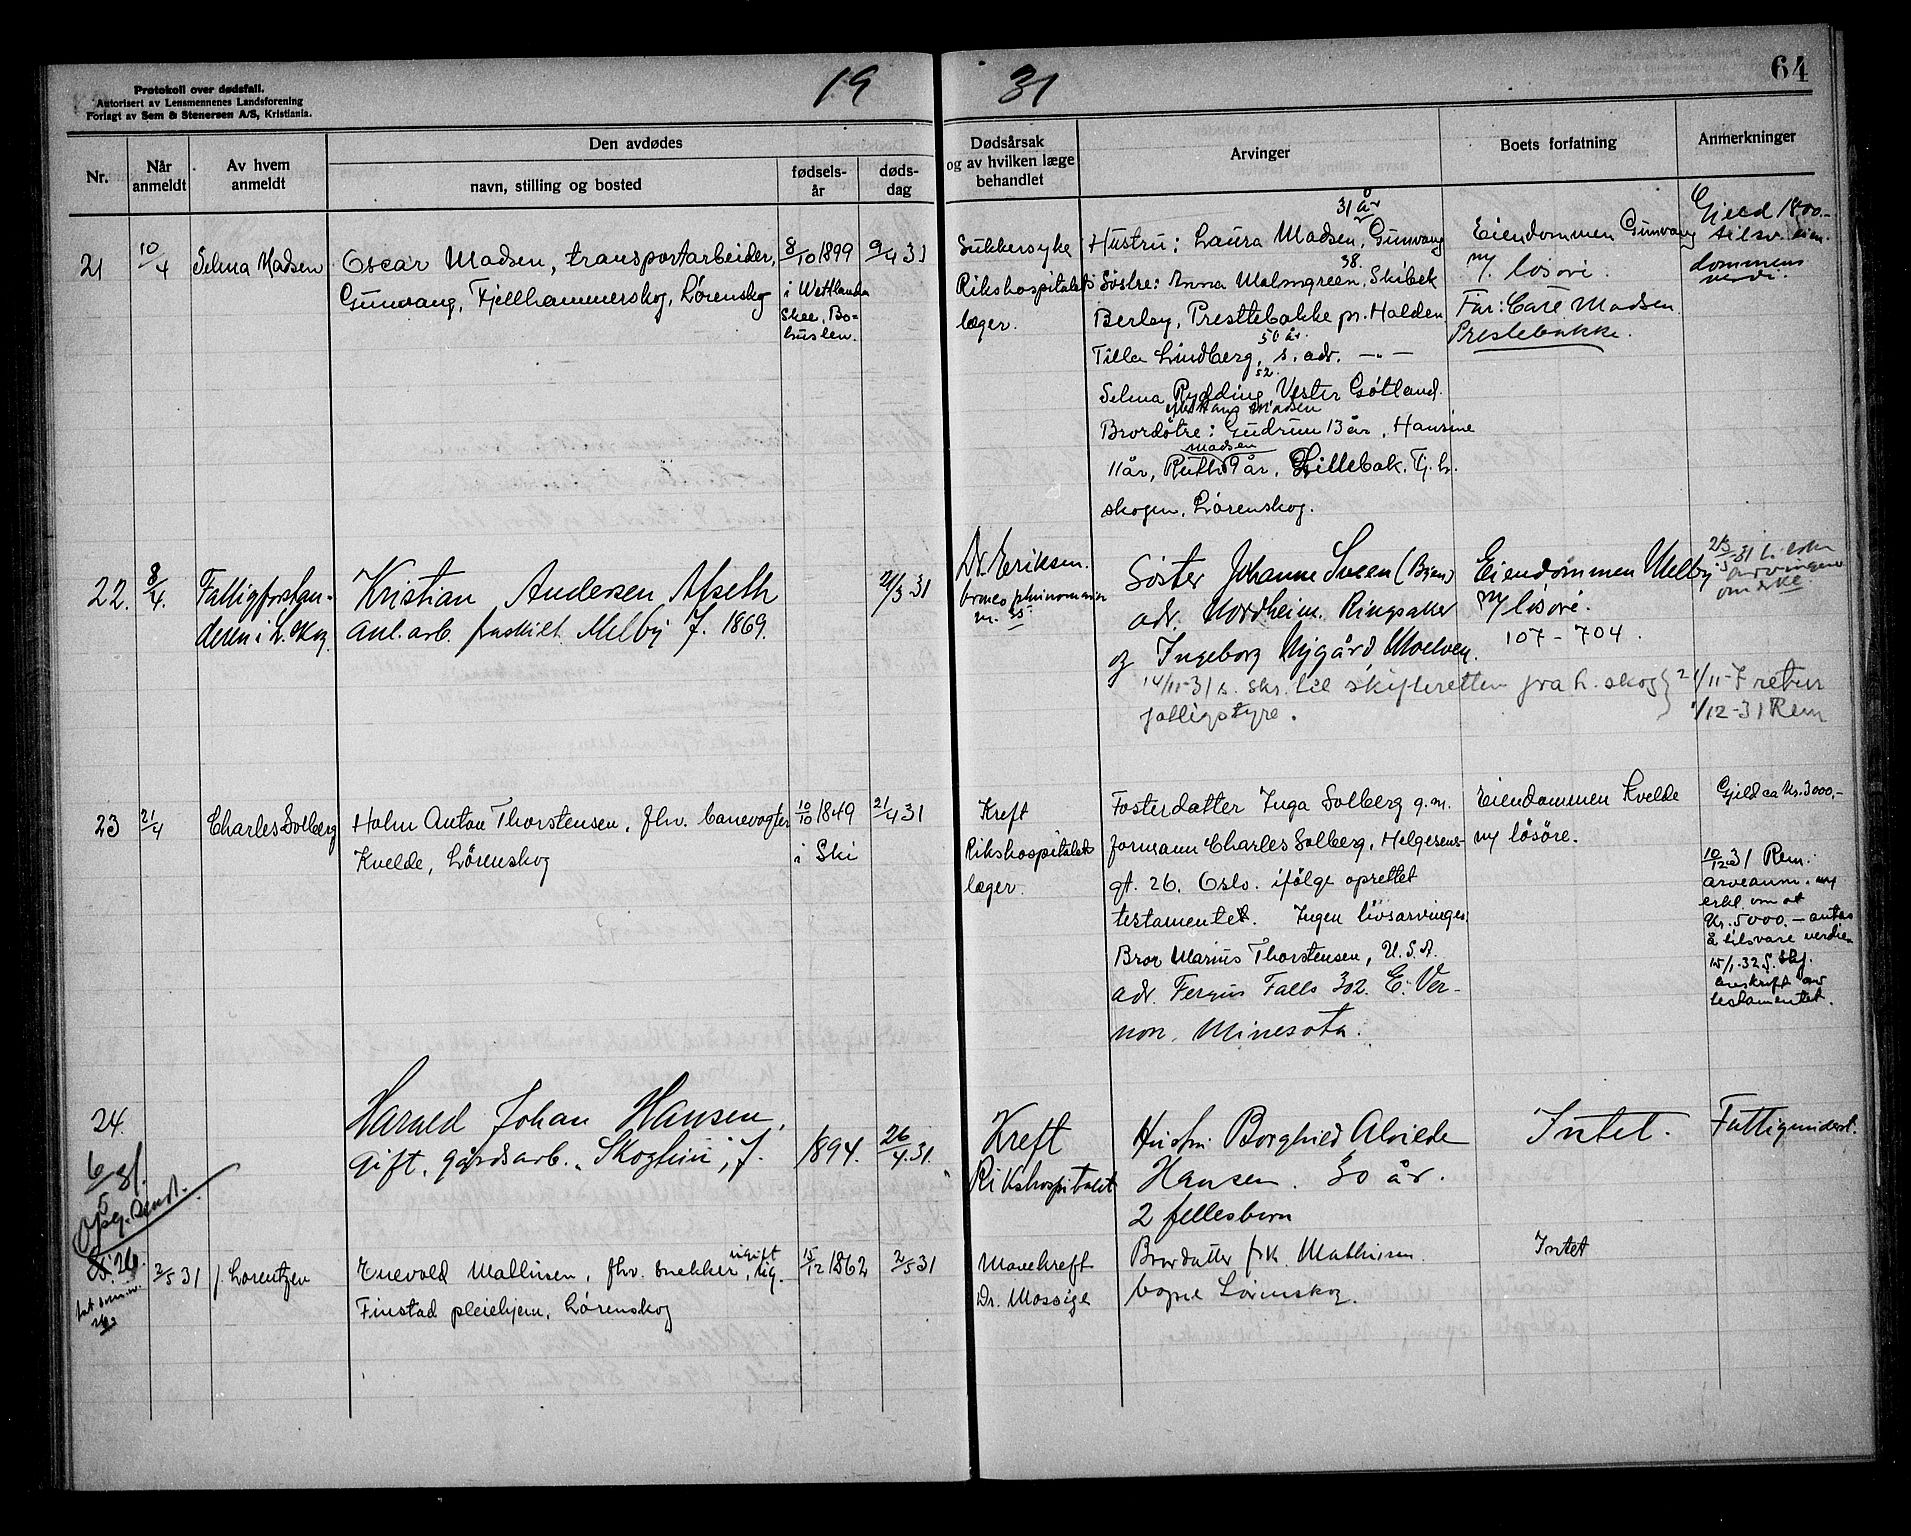 Protokoll over dødsfall.
Autorisert av Lensmennenes Landsforening
Forlagt av Sem & Stenersen A/S, Kristiania.
19 31
64
Nr.
Når anmeldt
Av hvem anmeldt
Den avdødes
navn, stilling og bosted
fødsels-år
døds-dag
Dødsårsak og av hvilken læge behandlet
Arvinger
Boets forfatning
Anmerkninger
21
10/4
Selma Madsen
Oscar Madsen, transportarbeider,
Gunvang, Fjellhammerskog, Lørenskog
8/10 1899
i Wettlanda
Skee, Bo=
huslen.
9/4 31
Sukkersyke
Rikshospitalets
læger.
31 år
Hustru: Laura Madsen, Gunvang
38.
Søstre: Anna Malmgreen, Skibek
Berby, Prestebakke pr. Halden
50 år.
Tilla Lindberg, s. adr. —„—
52.
Selma Rydding, Vester Gøtland.
Madsen
Brordøtre: Gudrun 13 år, Hansine
Madsen
11 år, Ruth 9 år, Lillebak. Fj.h.
skogen, Lørenskog.
Eiendommen Gunvang
m/ løsøre.
Far: Carl Madsen
Prestebakke.
Gjeld 1800.-
tilsv. eien-
dommens
verdi.
22.
8/4.
Fattigforstan-
deren i L. skog.
Kristian Andersen Afseth
anl. arb. fraskilt Melby f. 1869.
2/3 31
Dr. Eriksen.
Søster Johanne Sveen (Bjen)
adr. Nordheim. Ringsaker
og Ingeborg Nygård Moelven.
14/11-31 s. skr. til skifteretten fra L. skog
fattigstyre.
Eiendommen Melby
m/ løsøre.
107 - 704.
arvingene
21/11- F retur
1/12-31 Rem
23
21/4
Charles Solberg
Halm Anton Thorstensen, fhv. banevogter
Kvelde, Lørenskog
10/10 1849
i Ski
21/4 31
Kreft
Rikshospitalets
læger.
Fosterdatter Inga Solberg g.m.
formann Charles Solberg, Helgesens-
gt. 26. Oslo. ifølge oprettet
testamentet. Ingen livsarvinger.
Bror Marius Thorstensen, U.S.A.
adr. Fergus Falls 302. E. Ver-
non, Minesota.
Eiendommen Kvelde
m/ løsøre.
Gjeld ca kr. 3000,-
10/12 31 Rem.
arveanm. m/
erkl. om at
Kr. 5000.- antas
å tilsvare verdien
15/1-32 S. Skj.
avskrift av
testamentet.
24.
6/5 31.
Harald Johan Hansen,
gift, gårdsarb. „Skoglui", f.
1894.
26/4.31.
Kreft
Rikshospitalet
Hustru Borghild Alvilde
Hansen. 30 år.
2 fellesbarn
Intet.
Fattigunderst.
2/5 31
f. Lorentzen
Enevold Mathisen, fhv. snekker, ugift
Finstad pleiehjem, Lørenskog
15/12 1862
2/5 31
Mavekreft
Dr. Mossige
Brordatter frk. Mathisen
Lørenskog.
Intet